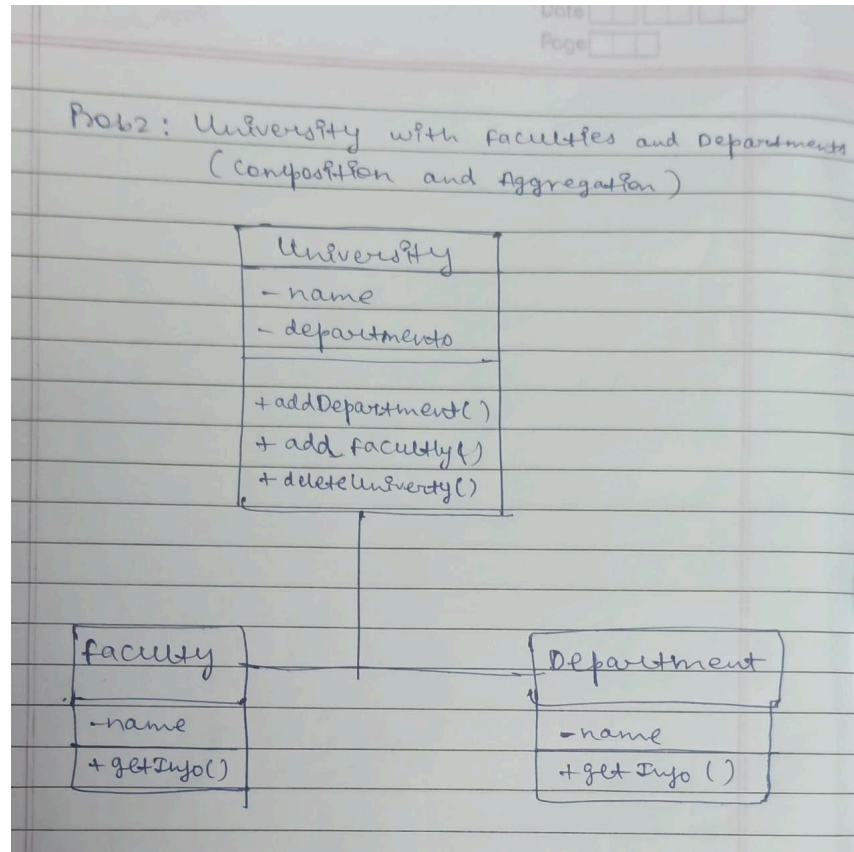 Date
Page
Prob2: University with faculties and Departments
(Composition and Aggregation)
University
- name
- departments
+ addDepartment()
+ add facultly()
+ deleteUniverty()
faculty
Department
- name
- name
+ getInfo()
+ getInfo ()